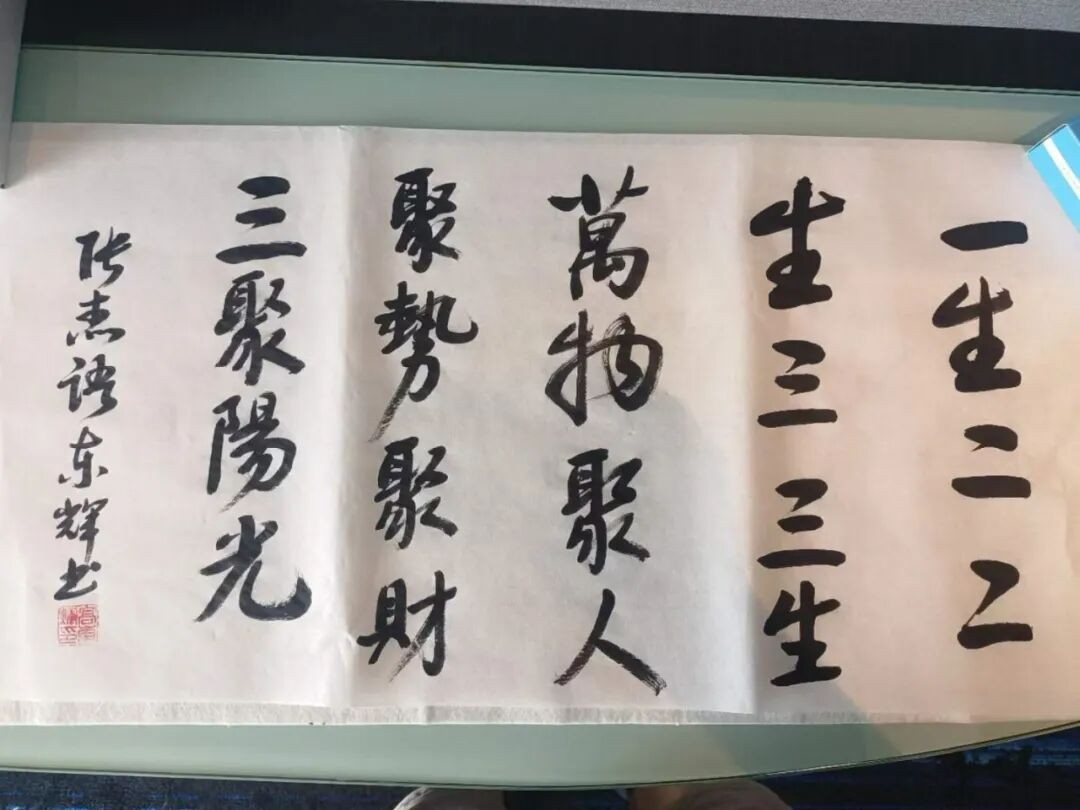 一生二二
生三三生
萬物聚人
聚勢聚財
三聚陽光
张志语东辉书